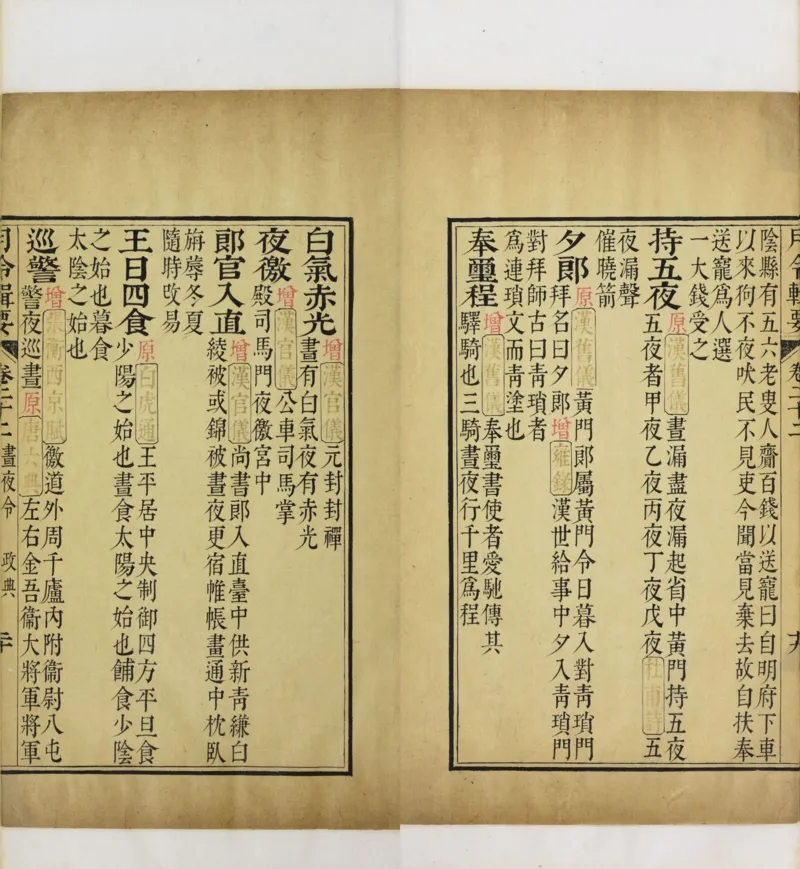 月令輯要 卷二十二
陰縣有五六老叟人齎百錢以送寵曰自明府下車
以來狗不夜吠民不見吏今聞當見棄去故自扶奉
送寵爲人選
一大錢受之
持五夜 原漢舊儀晝漏盡夜漏起省中黃門持五夜
五夜者甲夜乙夜丙夜丁夜戊夜杜甫詩五
夜漏聲
催曉箭
夕郎 原漢舊儀黃門郎屬黃門令日暮入對青瑣門
拜名曰夕郎增雍錄漢世給事中夕入青瑣門
對拜師古曰青瑣者
爲連瑣文而青塗也
奉璽程 增漢舊儀奉璽書使者愛馳傳其
驛騎也三騎晝夜行千里爲程
白氣赤光 增漢官儀元封封禪
晝有白氣夜有赤光
夜徼 增漢官儀公車司馬掌
殿司馬門夜徼宮中
郎官入直 增漢官儀尚書郎入直臺中供新青縑白
綾被或錦被晝夜更宿帷帳畫通中枕臥
旃蓐冬夏
隨時改易
王日四食 原白虎通王平居中央制御四方平旦食
少陽之始也晝食太陽之始也餔食少陰
之始也暮食
太陰之始也
巡警 增張衡西京賦徼道外周千廬內附衞尉八屯
警夜巡晝原唐六典左右金吾衞大將軍將軍
月令輯要 卷二十二 晝夜令 政典 二十